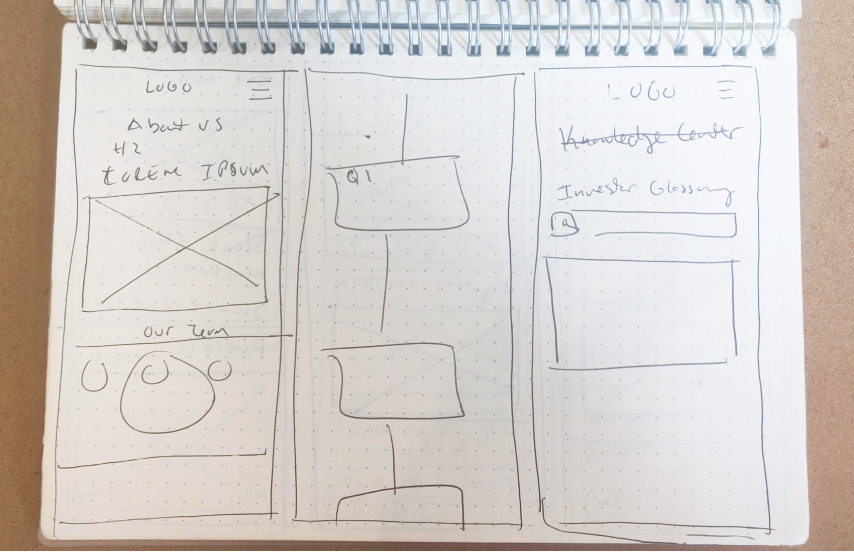 LOGO
About US
H2
LOREM IPSUM
Our Team
Q1
LOGO
Knowledge Center
Investor Glossary